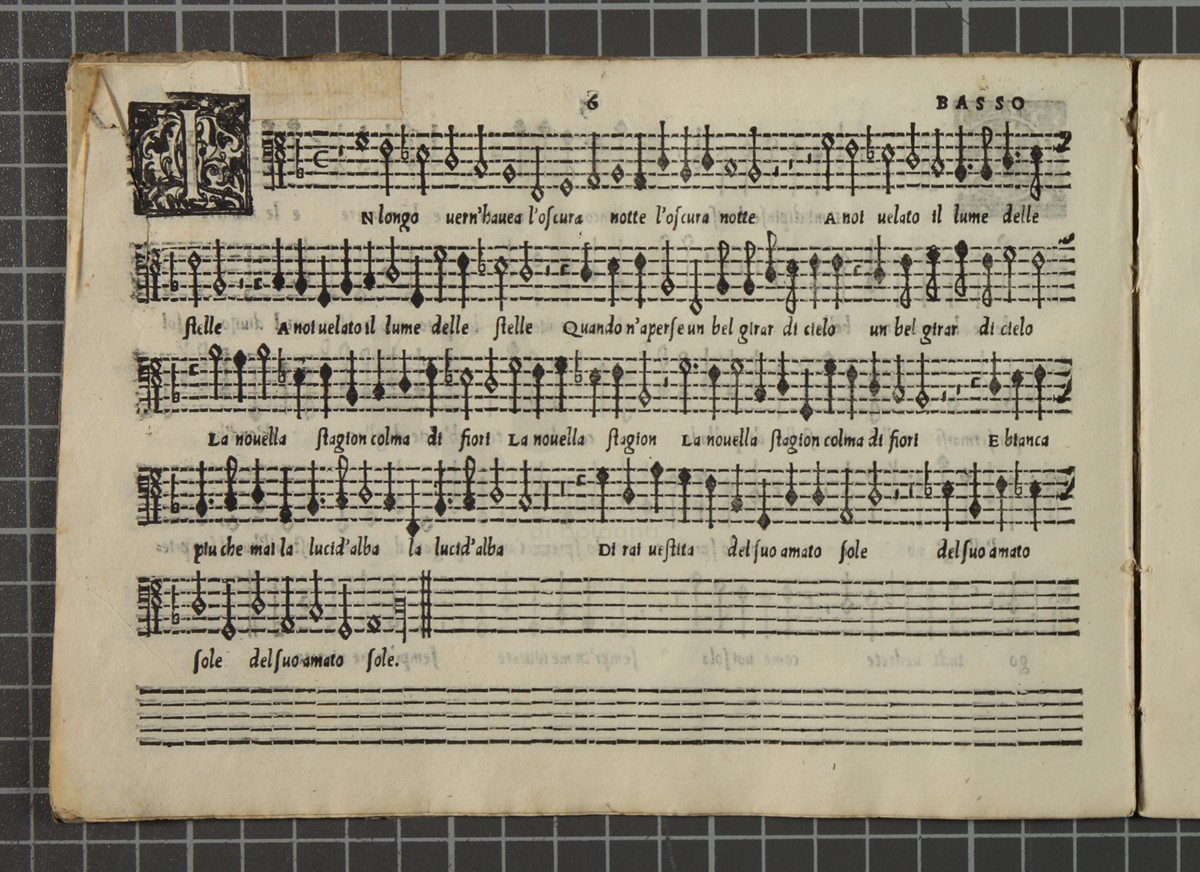 6 BASSO
IN longo uern'hauea l'oſcura notte l'oſcura notte A noi uelato il lume delle
ſtelle A noi uelato il lume delle ſtelle Quando n'aperſe un bel girar di cielo un bel girar di cielo
La nouella ſtagion colma di fiori La nouella ſtagion La nouella ſtagion colma di fiori E bianca
piu che mai la lucid'alba la lucid'alba Di rai ueſtita del ſuo amato ſole del ſuo amato
ſole del ſuo amato ſole.